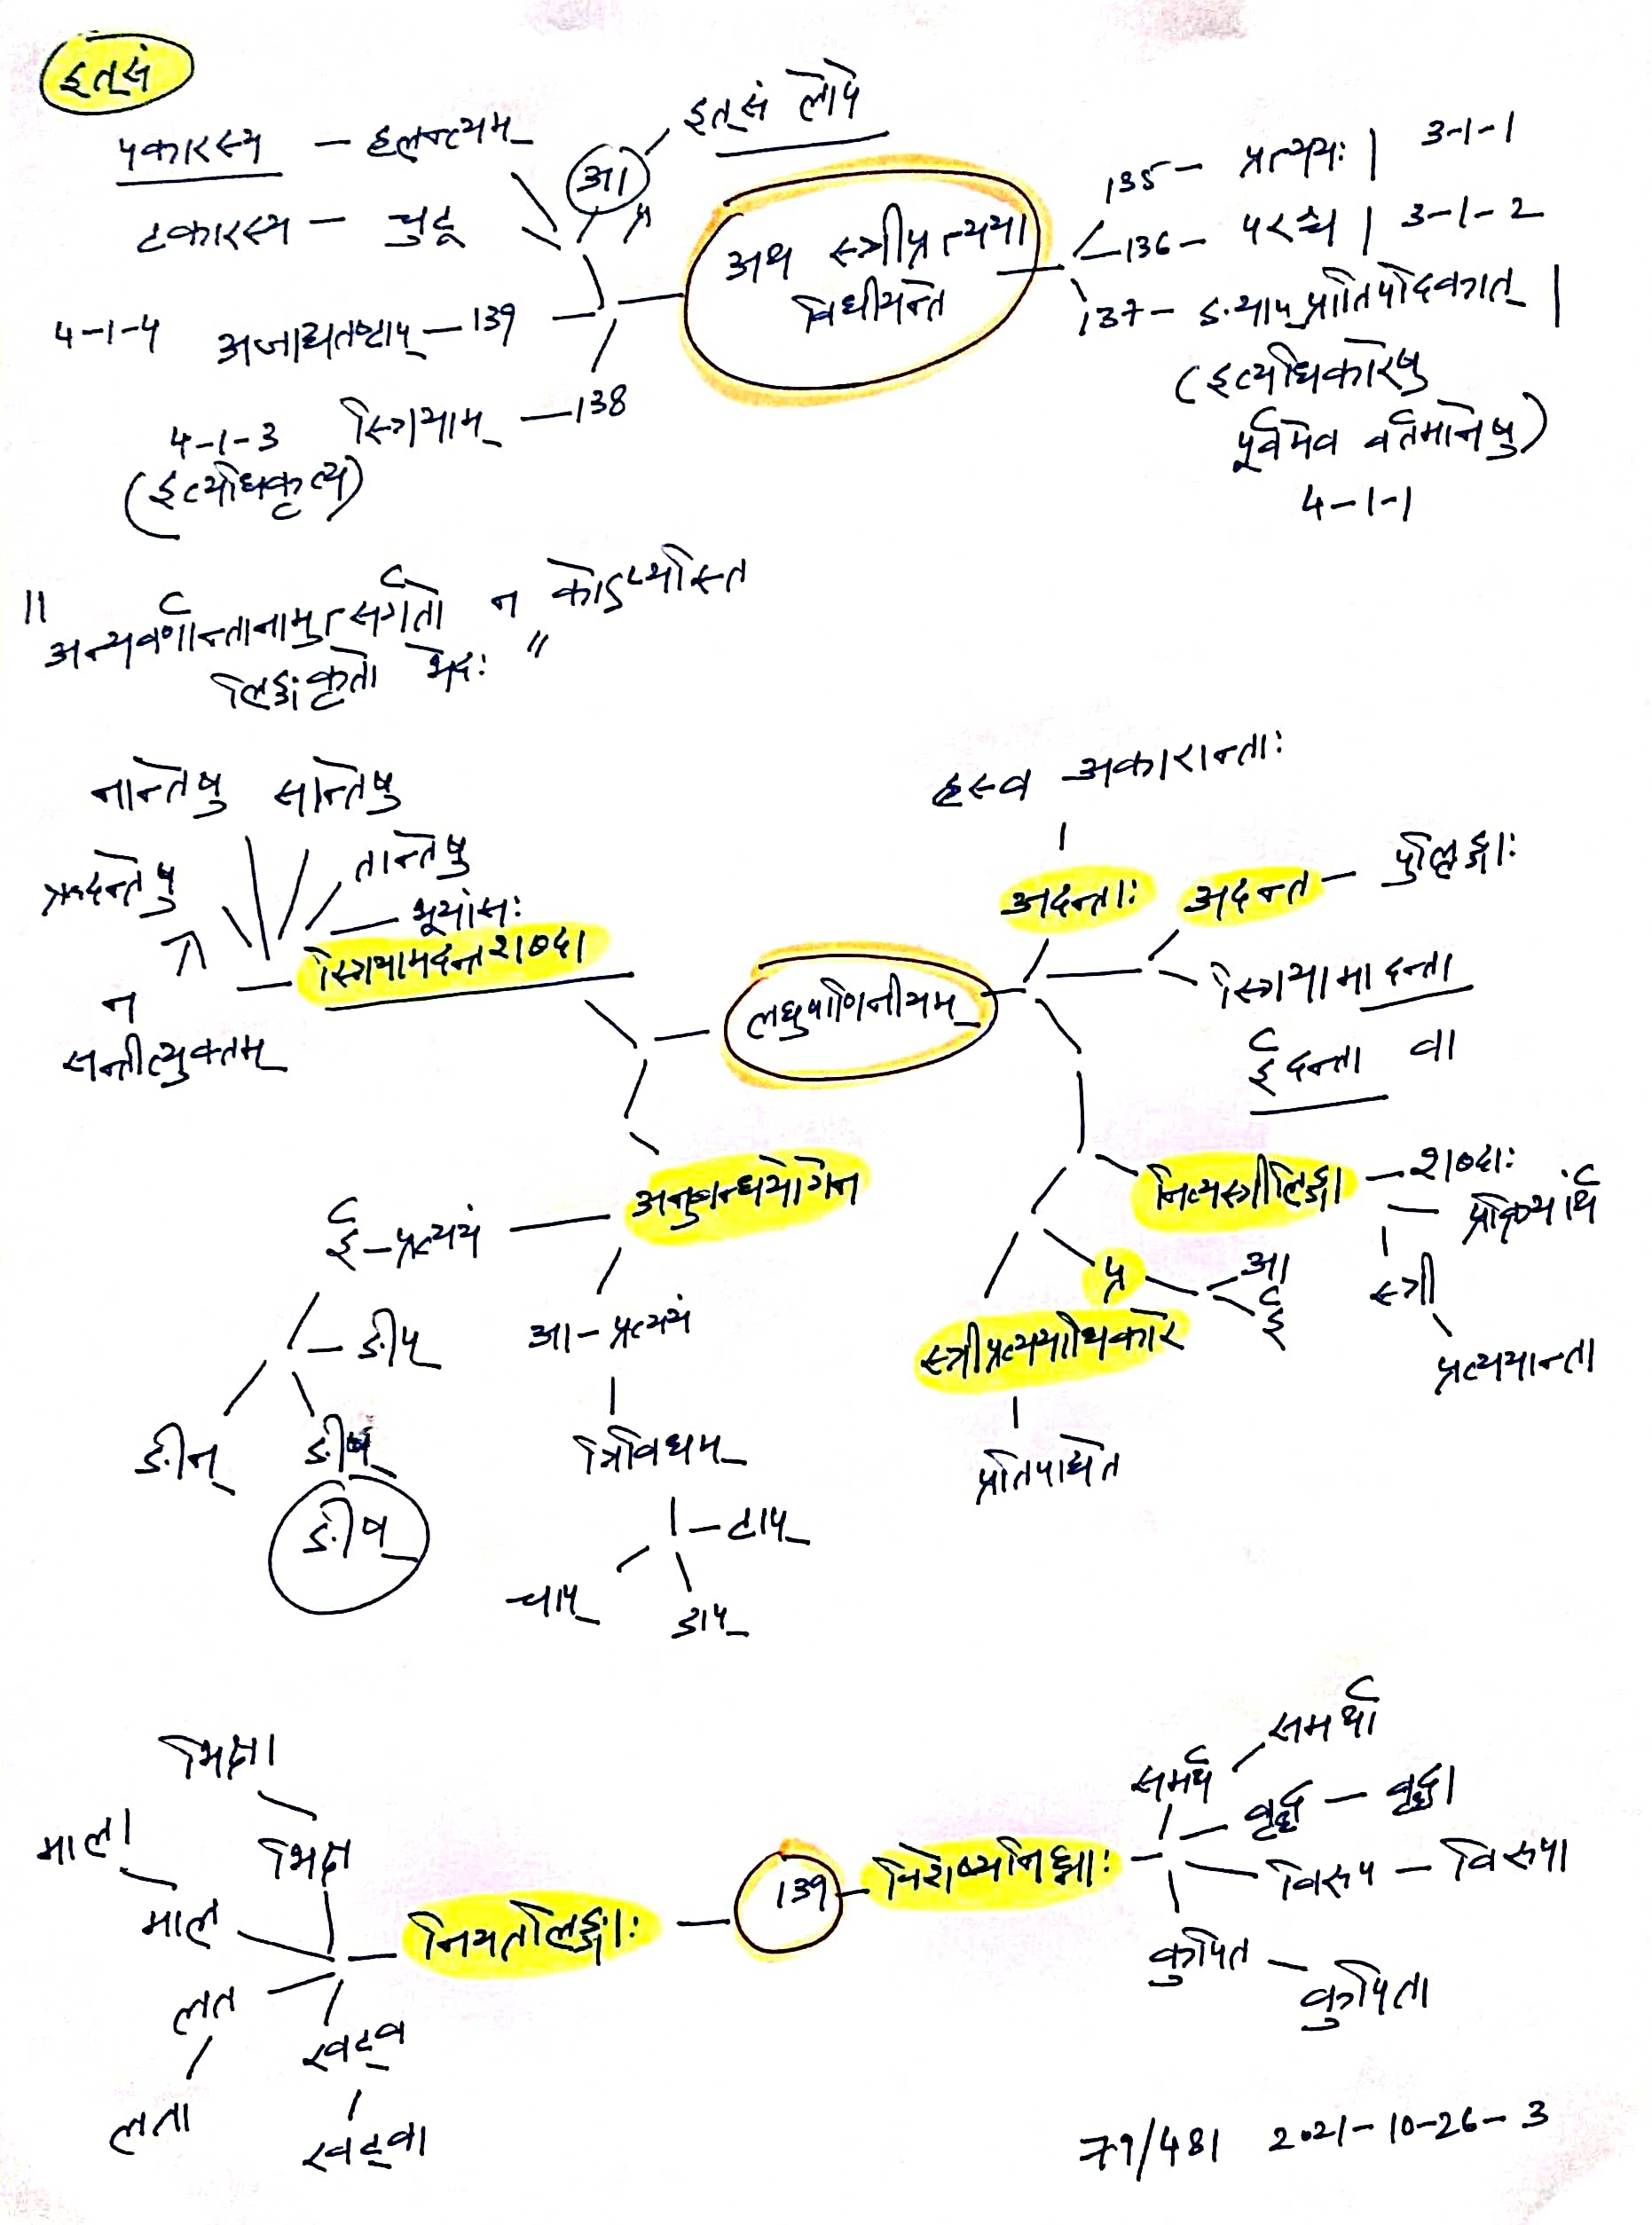 इत्सं
पकारस्य – हलन्त्यम्
टकारस्य – चुटू
आ
इत्सं लोपे
4-1-4 अजाद्यतष्टाप् – 139
4-1-3 स्त्रियाम् – 138
(इत्यधिकृत्य)
अथ स्त्रीप्रत्यया
विधीयन्ते
135 – प्रत्ययः | 3-1-1
136 – परश्च | 3-1-2
137 – ङ्याप्प्रातिपदिकात् |
(इत्यधिकारेषु
पूर्वमेव वर्तमानेषु)
4-1-1
"अन्यवर्णान्तानामुत्सर्गतो न कोऽप्यस्ति
लिङ्गकृतो भेदः"
नान्तेषु सान्तेषु
ऋदन्तेषु
तान्तेषु
भूयांसः
स्त्रियामदन्तशब्दा
न
सन्तीत्युक्तम्
लघुपाणिनीयम्
ह्रस्व अकारान्ताः
अदन्ताः
अदन्त – पुंल्लिङ्गाः
स्त्रियामादन्ता
ईदन्ता वा
अनुबन्धयोगेन
ई – प्रत्ययं
ङीप्
ङीन्
ङीष्
ङीष्
आ – प्रत्ययं
त्रिविधम्
टाप्
चाप्
डाप्
नित्यस्त्रीलिङ्गा – शब्दाः
प्रक्रियार्थं
स्त्री
प्रत्ययान्ता
प्र
आ
ई
स्त्रीप्रत्ययाधिकारे
प्रतिपाद्यते
139
नियतलिङ्गाः
भिक्षा
भिक्ष
माला
माल
लत
लता
खट्व
खट्वा
विशेष्यनिघ्नाः
समर्थ – समर्था
वृद्ध – वृद्धा
विरूप – विरूपा
कुपित – कुपिता
79/481 2021-10-26-3